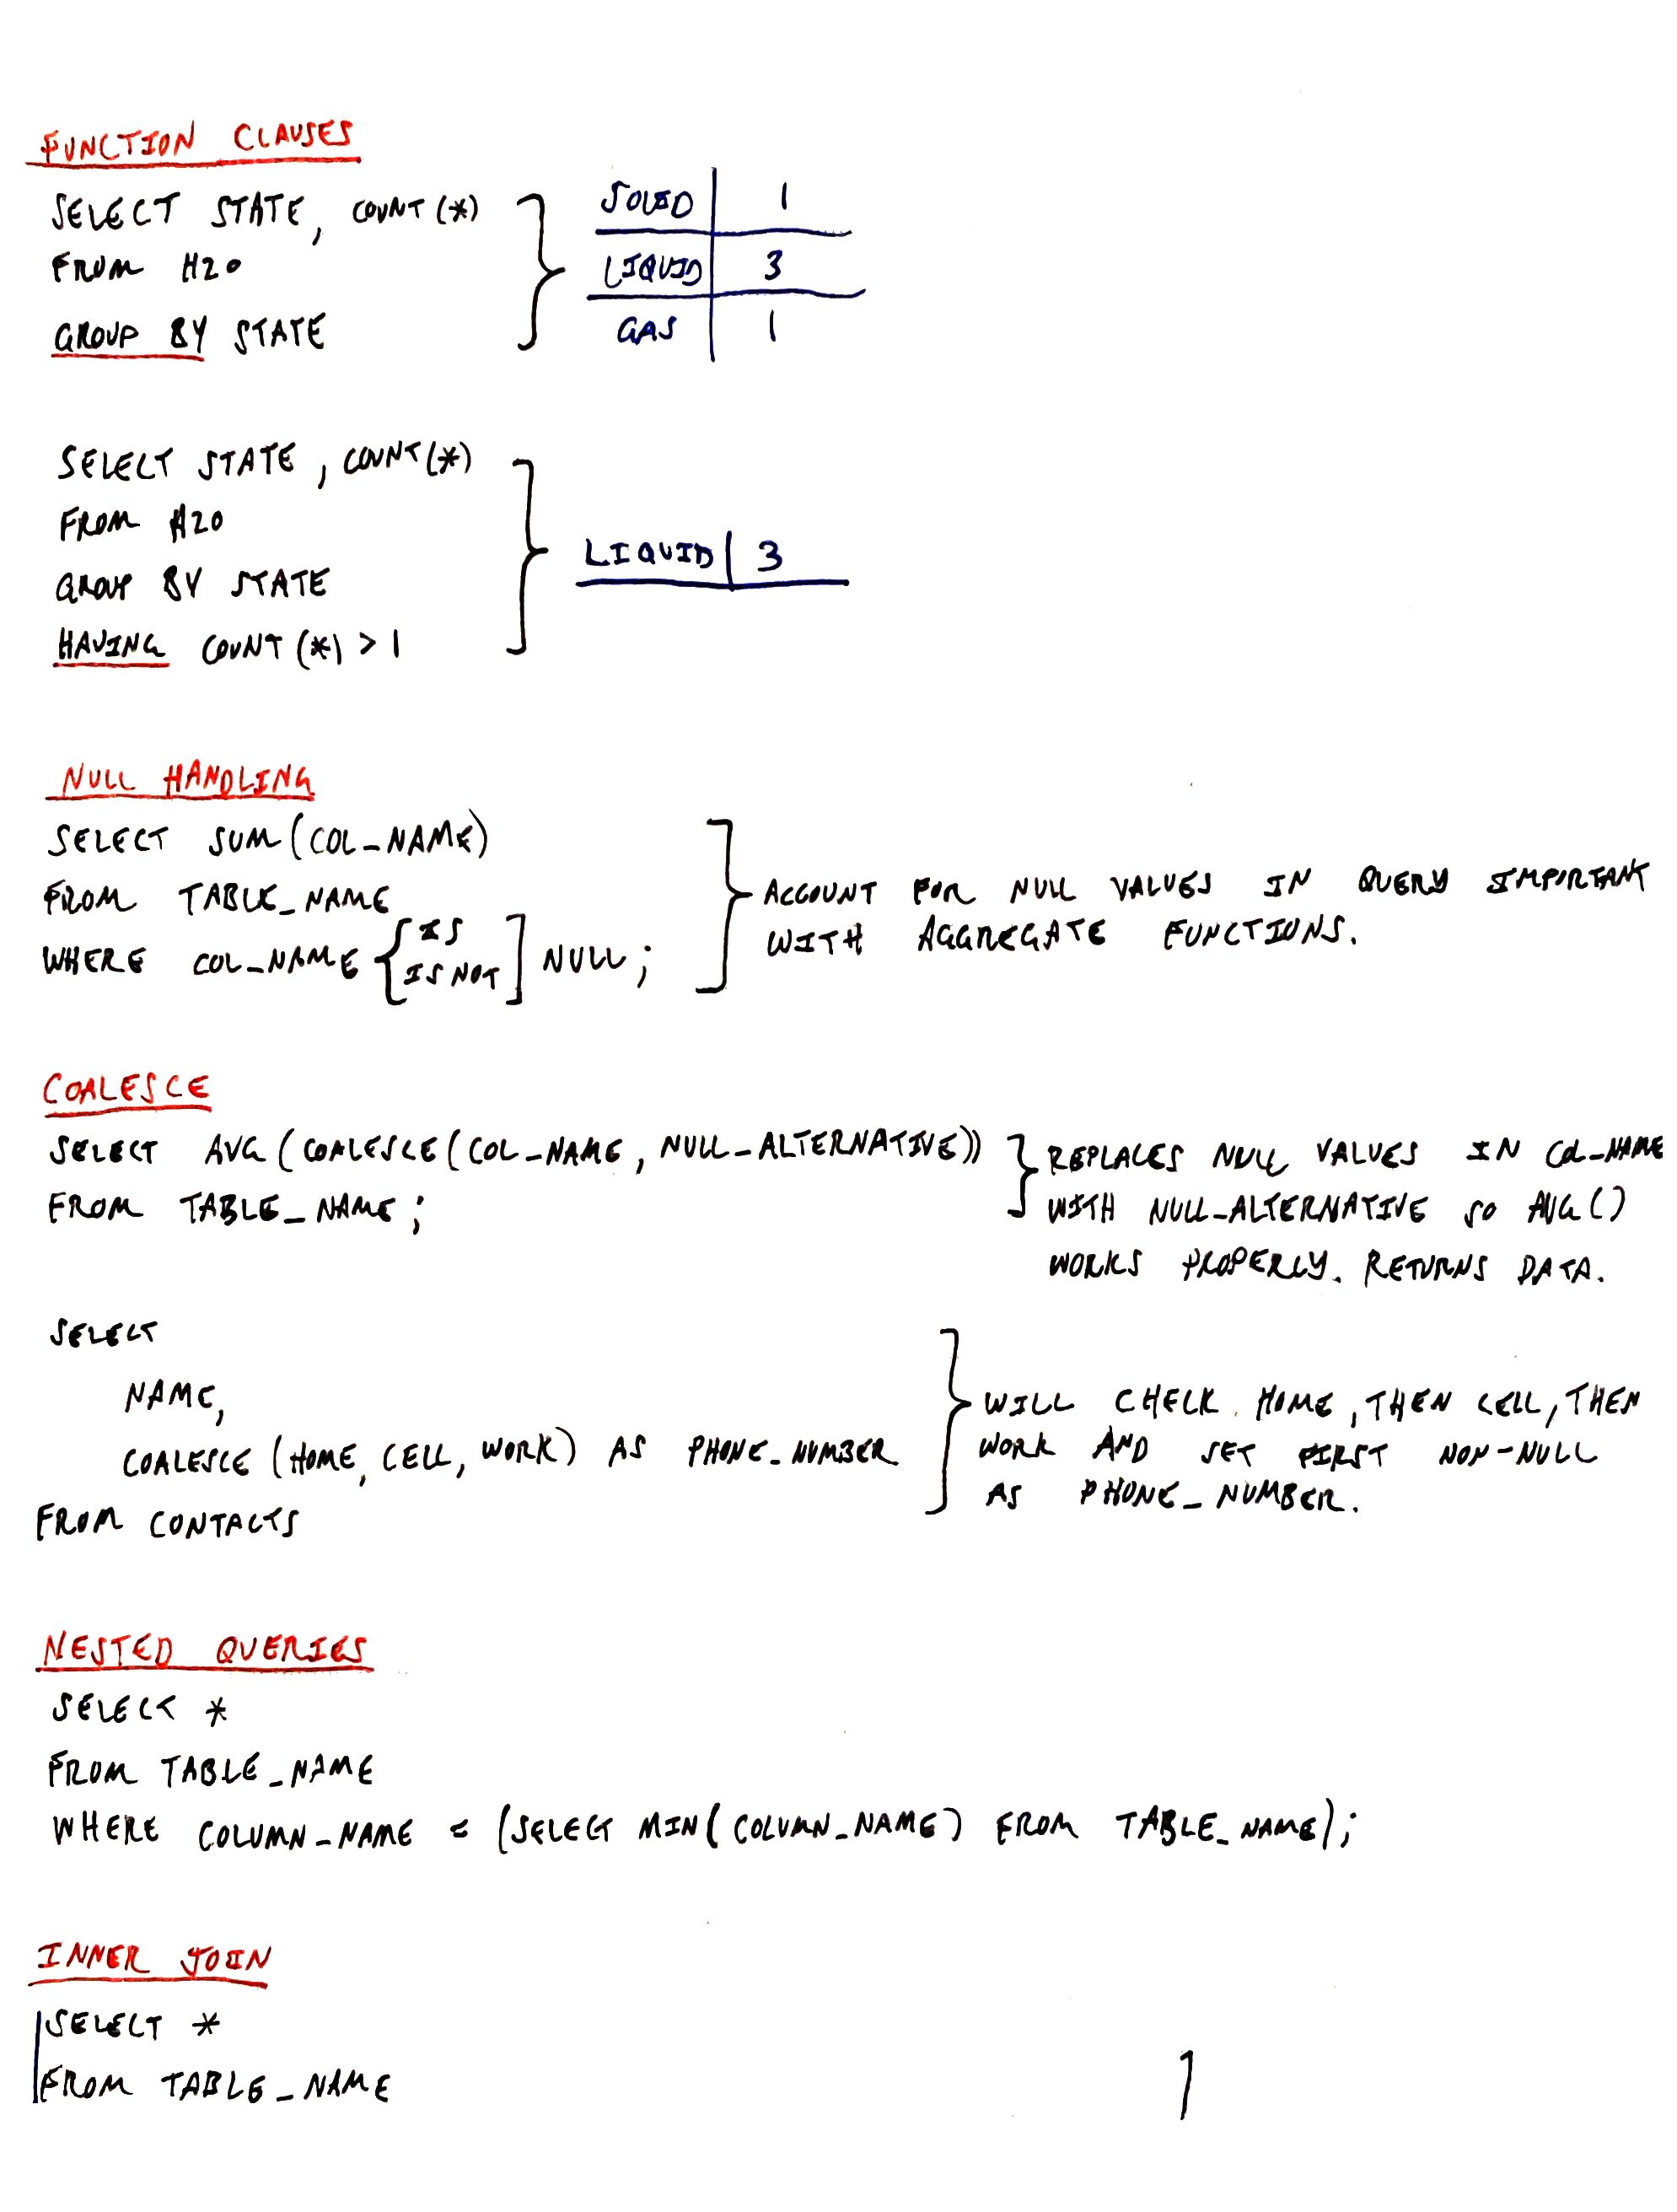 FUNCTION CLAUSES
SELECT STATE, COUNT(*)
FROM H2O
GROUP BY STATE
SOLID 1
LIQUID 3
GAS 1
SELECT STATE, COUNT(*)
FROM H2O
GROUP BY STATE
HAVING COUNT(*) > 1
LIQUID 3
NULL HANDLING
SELECT SUM(COL_NAME)
FROM TABLE_NAME
WHERE COL_NAME { IS
IS NOT ] NULL;
ACCOUNT FOR NULL VALUES IN QUERY IMPORTANT
WITH AGGREGATE FUNCTIONS.
COALESCE
SELECT AVG(COALESCE(COL_NAME, NULL_ALTERNATIVE))
FROM TABLE_NAME;
REPLACES NULL VALUES IN COL_NAME
WITH NULL_ALTERNATIVE SO AVG()
WORKS PROPERLY. RETURNS DATA.
SELECT
NAME,
COALESCE (HOME, CELL, WORK) AS PHONE_NUMBER
FROM CONTACTS
WILL CHECK HOME, THEN CELL, THEN
WORK AND SET FIRST NON-NULL
AS PHONE_NUMBER.
NESTED QUERIES
SELECT *
FROM TABLE_NAME
WHERE COLUMN_NAME = (SELECT MIN(COLUMN_NAME) FROM TABLE_NAME);
INNER JOIN
SELECT *
FROM TABLE_NAME